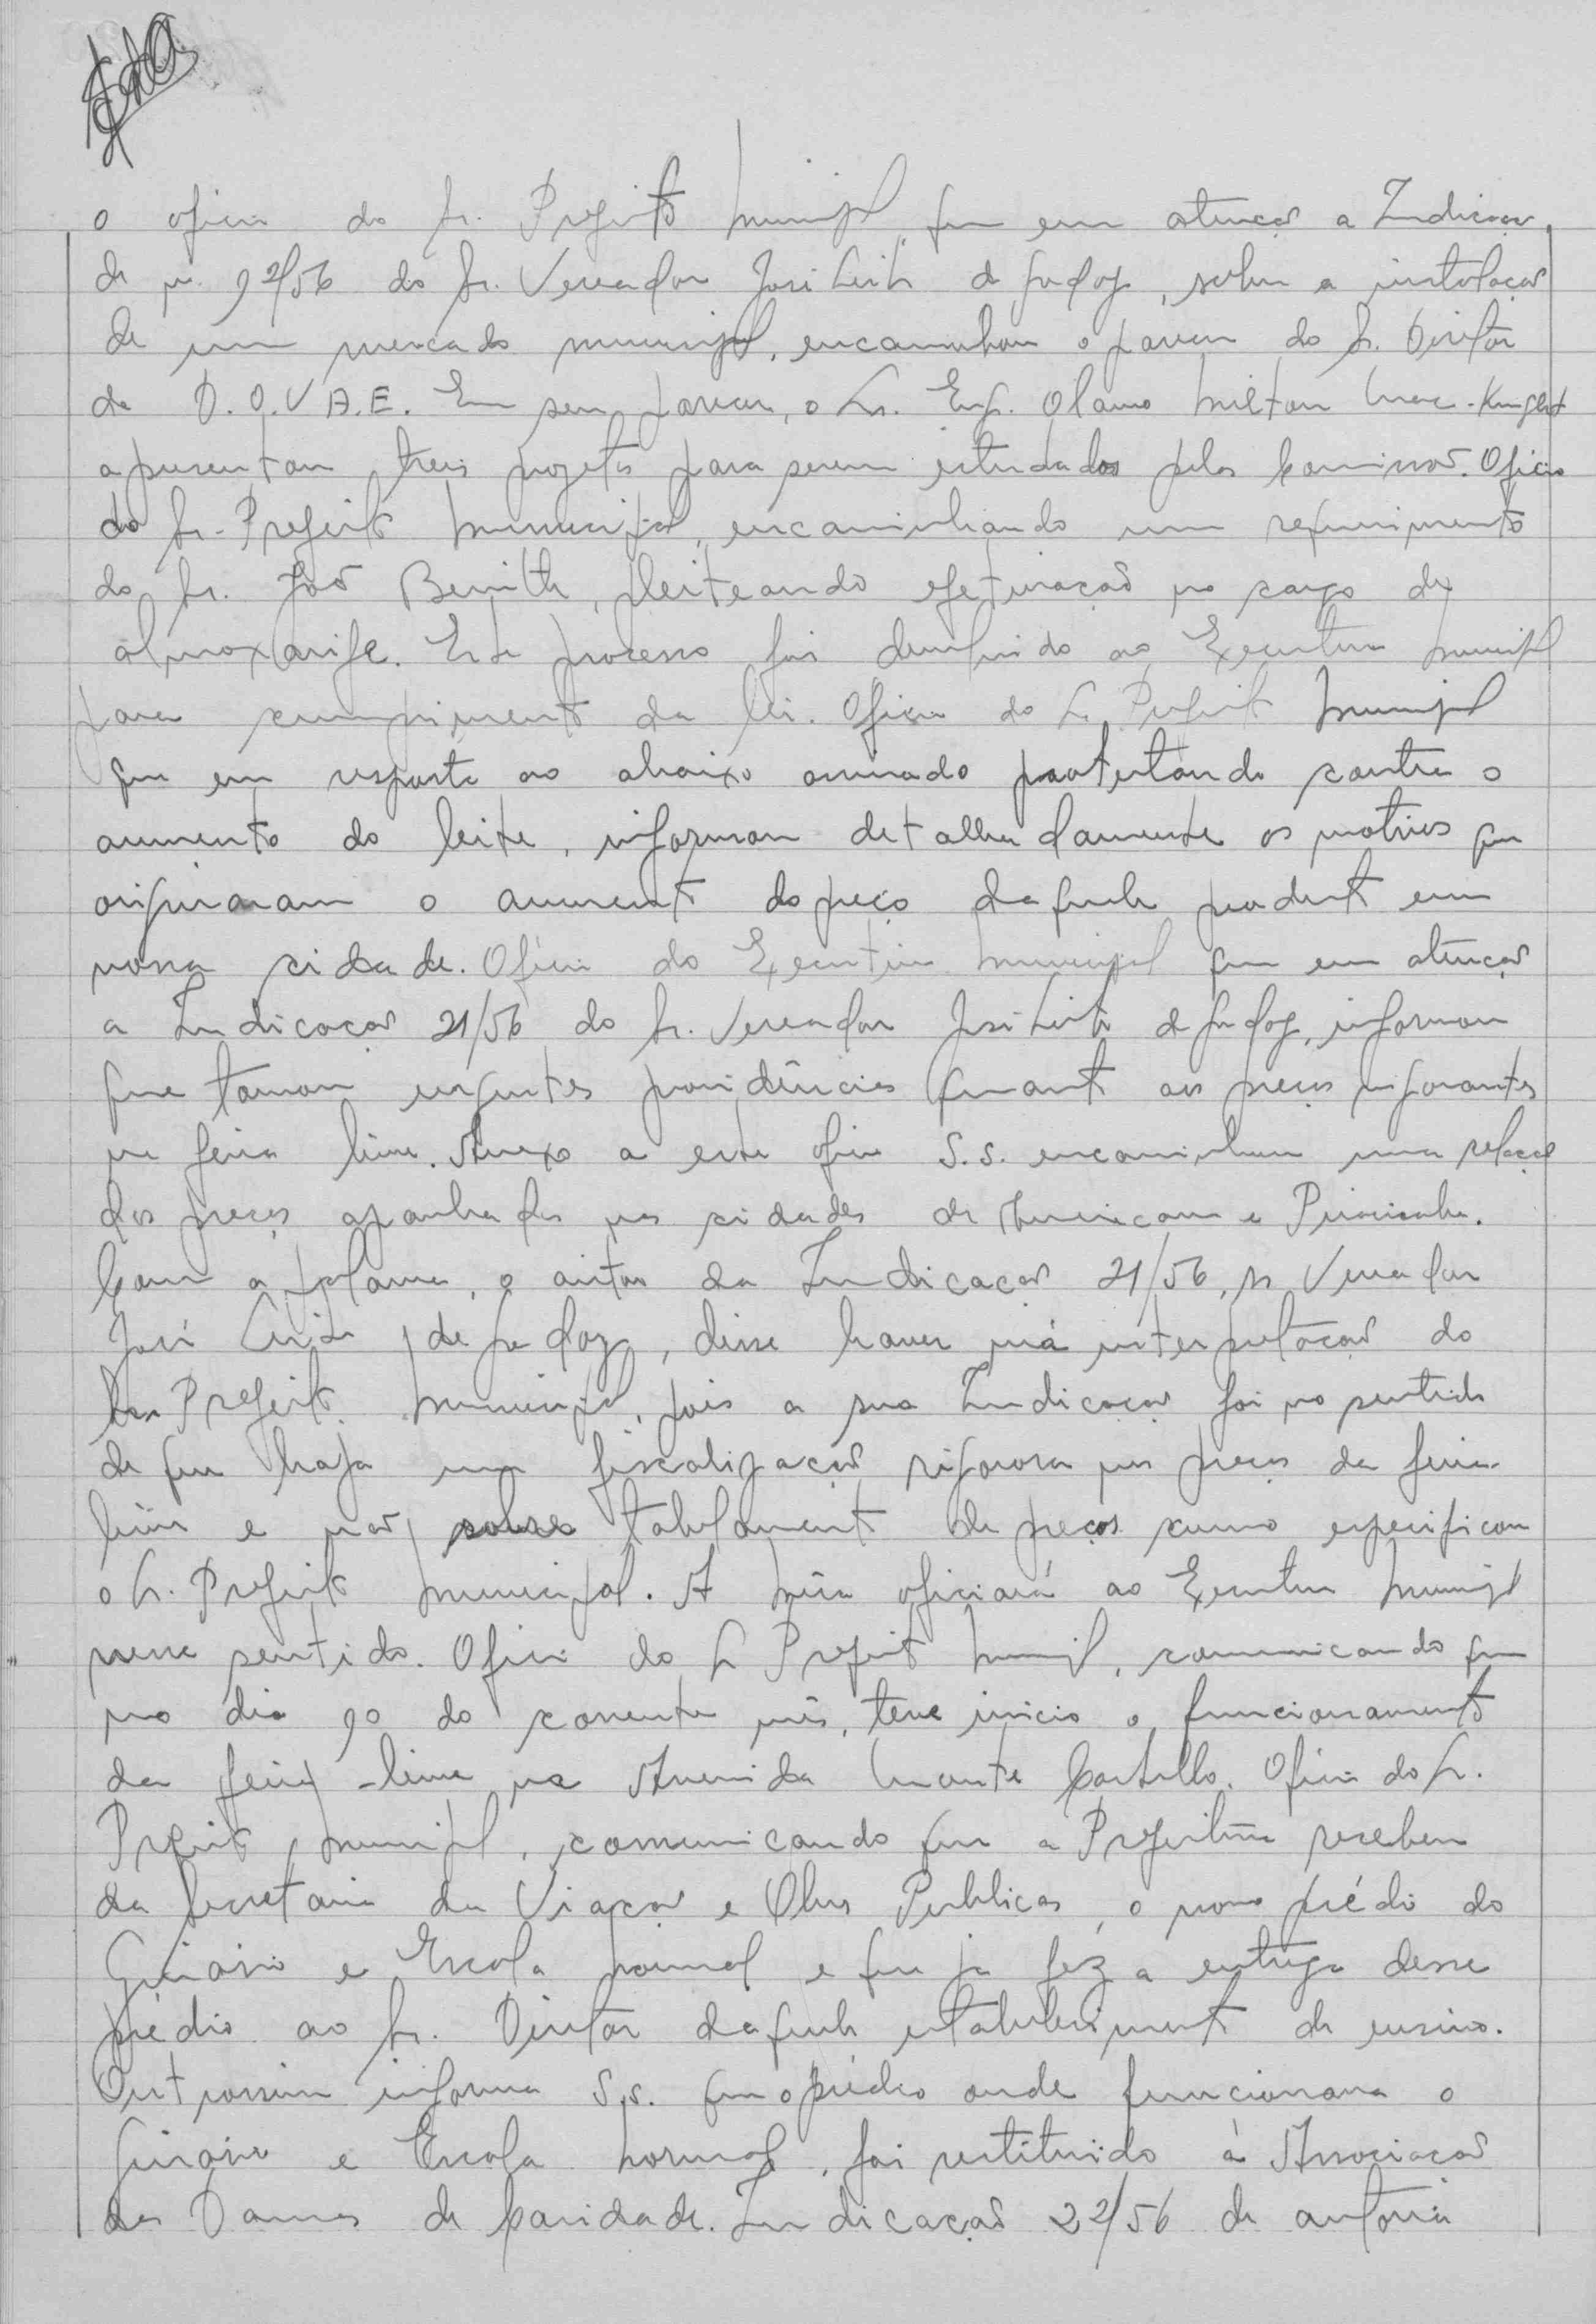 o oficio do Sr. Prefeito Municipal que em atenção a Indicação
de n. 92/56 do Sr. Vereador José Leite de Godoy, sobre a instalação
de um mercado municipal, encaminhou o parecer do Sr. Diretor
da D.O.V.A.E. Em seu parecer, o Sr. Eng. Olavo Milton Mac-Knight
apresentou treis projetos para serem estudados pelas Comissões. Oficio
do Sr. Prefeito Municipal, encaminhando um requerimento
do Sr. João pleiteando efetivação no cargo de
almoxarife. Este processo foi devolvido ao Executivo Municipal
para cumprimento da lei. Oficio do Sr Prefeito Municipal
que em resposta ao abaixo assinado protestando contra o
aumento do leite, informou detalhadamente os motivos que
originaram o aumento do preço daquele produto em
nossa cidade. Oficio do Executivo Municipal que em atenção
a Indicação 21/56 do Sr. Vereador José Leite de Godoy, informou
que tomou urgentes providências quanto aos preços vigorantes
na feira livre. Anexo a este oficio S.S. encaminhou uma relação
dos preços apanhados nas cidades de Americana e Piracicaba.
Com a palavra, o autor da Indicação 21/56, sr Vereador
José Leite de Godoy, disse haver má interpretação do
Sr. Prefeito Municipal, pois a sua Indicação foi no sentido
de que haja uma fiscalização rigorosa nos preços da feira
livre e não sobre tabelamento de preços como especificou
o Sr. Prefeito Municipal. A Mesa oficiará ao Executivo Municipal
nesse sentido. Oficio do Sr Prefeito Municipal, comunicando que
no dia 90 do corrente mês, teve inicio o funcionamento
da feira-livre na Avenida Monte Castello. Oficio do Sr.
Prefeito Municipal, comunicando que a Prefeitura recebeu
da Secretaria da Viação e Obras Publicas, o novo prédio do
Ginásio e Escola Normal e que já fez a entrega desse
prédio ao Sr. Diretor daquele estabelecimento de ensino.
Outrossim informa S.S. que o prédio onde funcionava o
Ginásio e Escola Normal, foi restituido á Associação
das Damas de Caridade. Indicação 22/56 de autoria